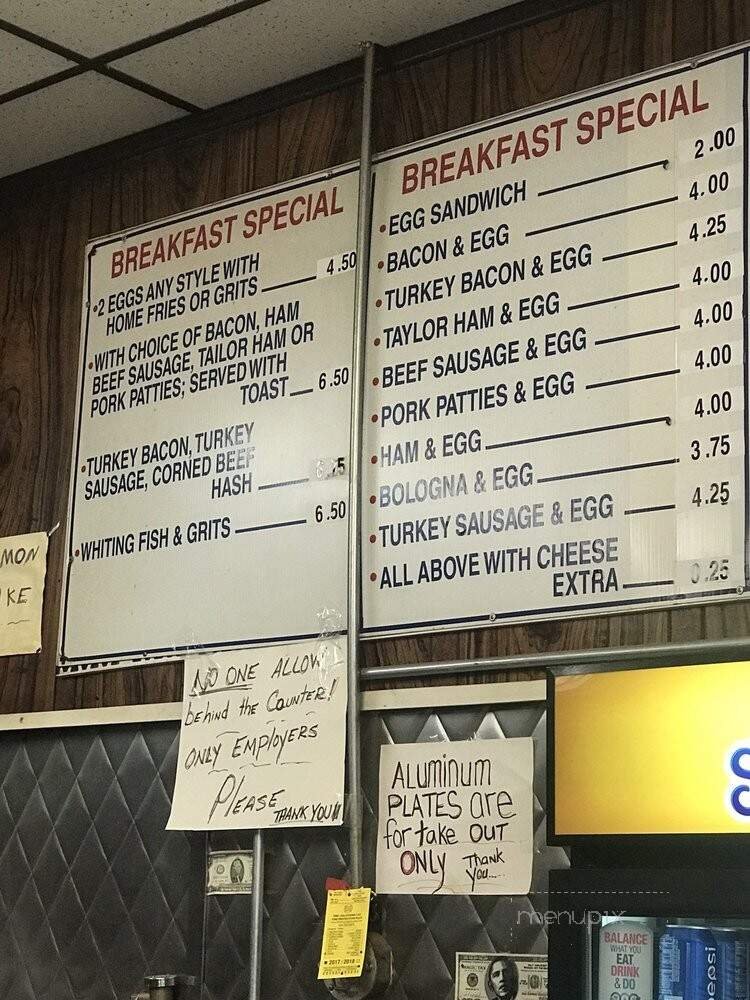 BREAKFAST SPECIAL
•2 EGGS ANY STYLE WITH
HOME FRIES OR GRITS 4.50
•WITH CHOICE OF BACON, HAM
BEEF SAUSAGE, TAILOR HAM OR
PORK PATTIES; SERVED WITH
TOAST 6.50
•TURKEY BACON, TURKEY
SAUSAGE, CORNED BEEF
HASH
•WHITING FISH & GRITS 6.50
BREAKFAST SPECIAL
•EGG SANDWICH 2.00
•BACON & EGG 4.00
•TURKEY BACON & EGG 4.25
•TAYLOR HAM & EGG 4.00
•BEEF SAUSAGE & EGG 4.00
•PORK PATTIES & EGG 4.00
•HAM & EGG 4.00
•BOLOGNA & EGG 3.75
•TURKEY SAUSAGE & EGG 4.25
•ALL ABOVE WITH CHEESE
EXTRA 0.25
MON
KE
NO ONE ALLOW
behind the Counter!
ONLY EMPLOYERS
PLEASE
THANK YOU!!
ALuminum
PLATES are
for take OUT
ONLY Thank
You....
S
2017-2018
menupix
BALANCE
WHAT YOU
EAT
DRINK
& DO
pepsi